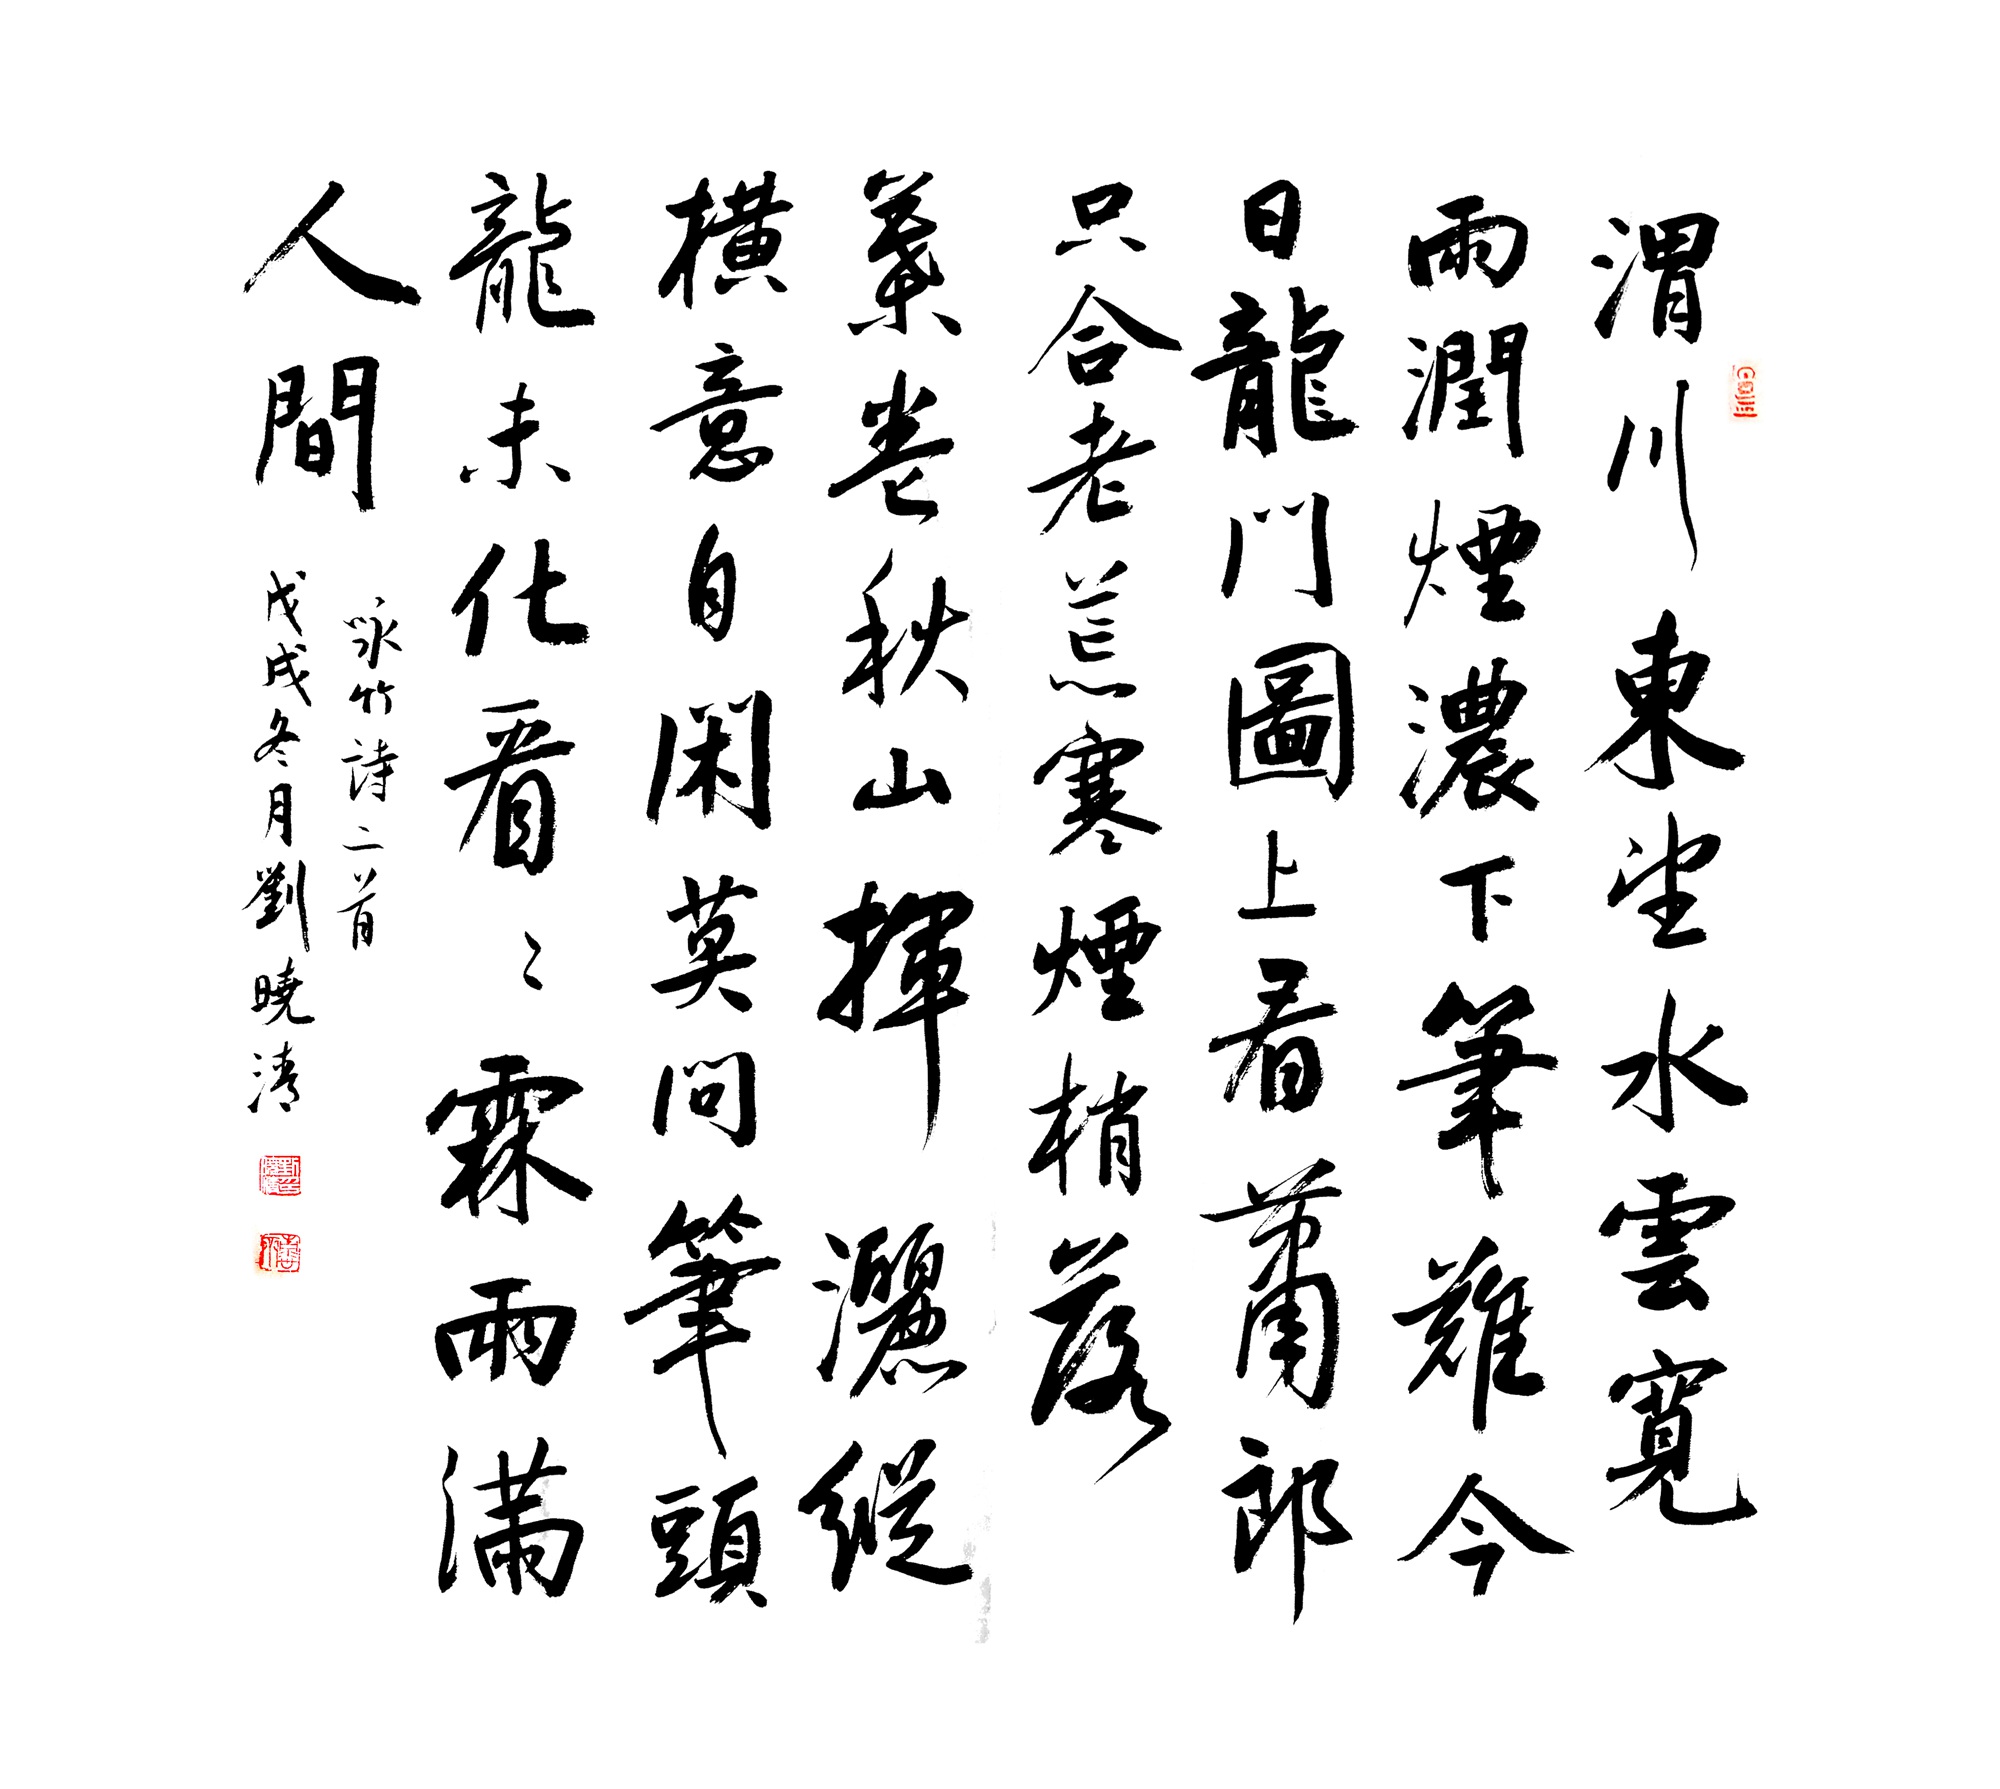 渭川東望水雲寬
雨潤煙濃下筆難今
日龍門圖上看蕭郎
只合老荒寒煙梢落
葉卷秋山揮灑縱
橫意自閑莫問筆頭
龍未化看〻霖雨滿
人間
咏竹詩二首
戊戌冬月劉曉清